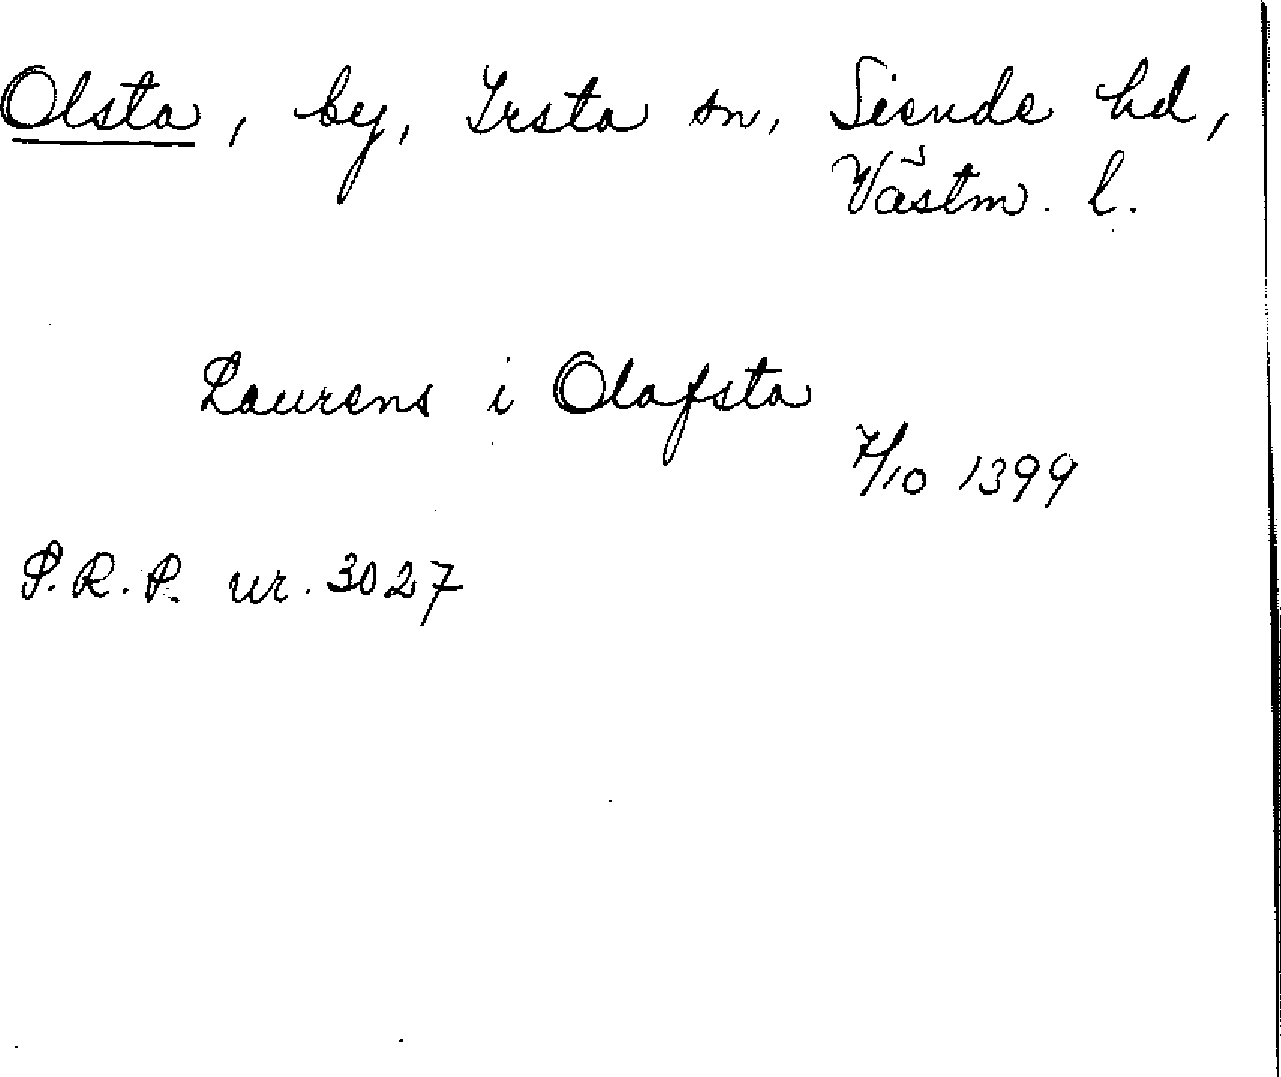 Olsta, by, Irsta sn, Siende hd,
Västm. l.
Laurens i Olafsta
7/10 1399
S.R.P. nr. 3027